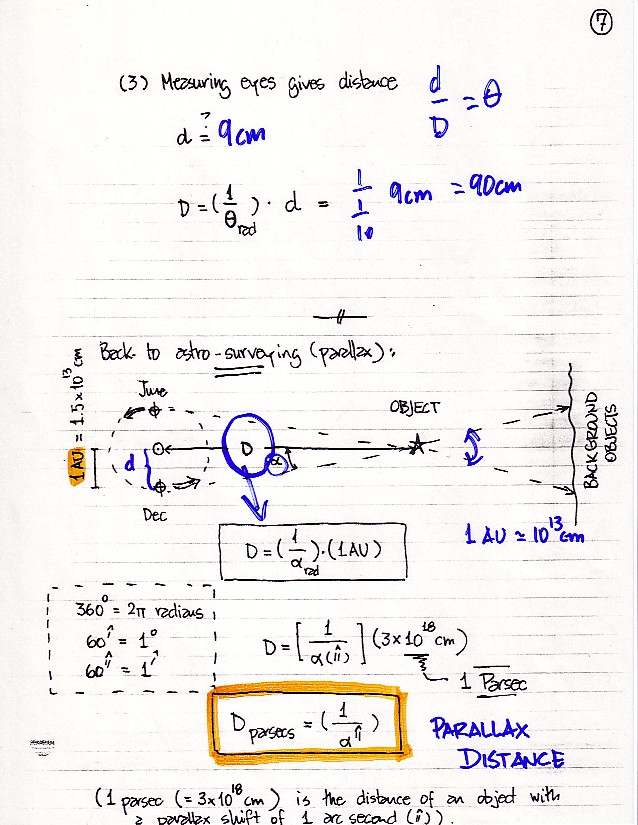 7
(3) Measuring eyes gives distance
d/D = θ
d ?= 9cm
D = (1/θrad) · d = 1/(1/10) 9cm = 90cm
Back to astro-surveying (parallax):
1 AU = 1.5 x 10^13 cm
June
OBJECT
D
d
α
Dec
BACKGROUND OBJECTS
1 AU ≃ 10^13 cm
D = (1/αrad) · (1AU)
360° = 2π radians
60' = 1°
60'' = 1'
D = [1/α('')] (3x10^18 cm)
1 Parsec
D parsecs = (1/α'')
PARALLAX
DISTANCE
(1 parsec (= 3x10^18 cm) is the distance of an object with
a parallax shift of 1 arc second ('')).